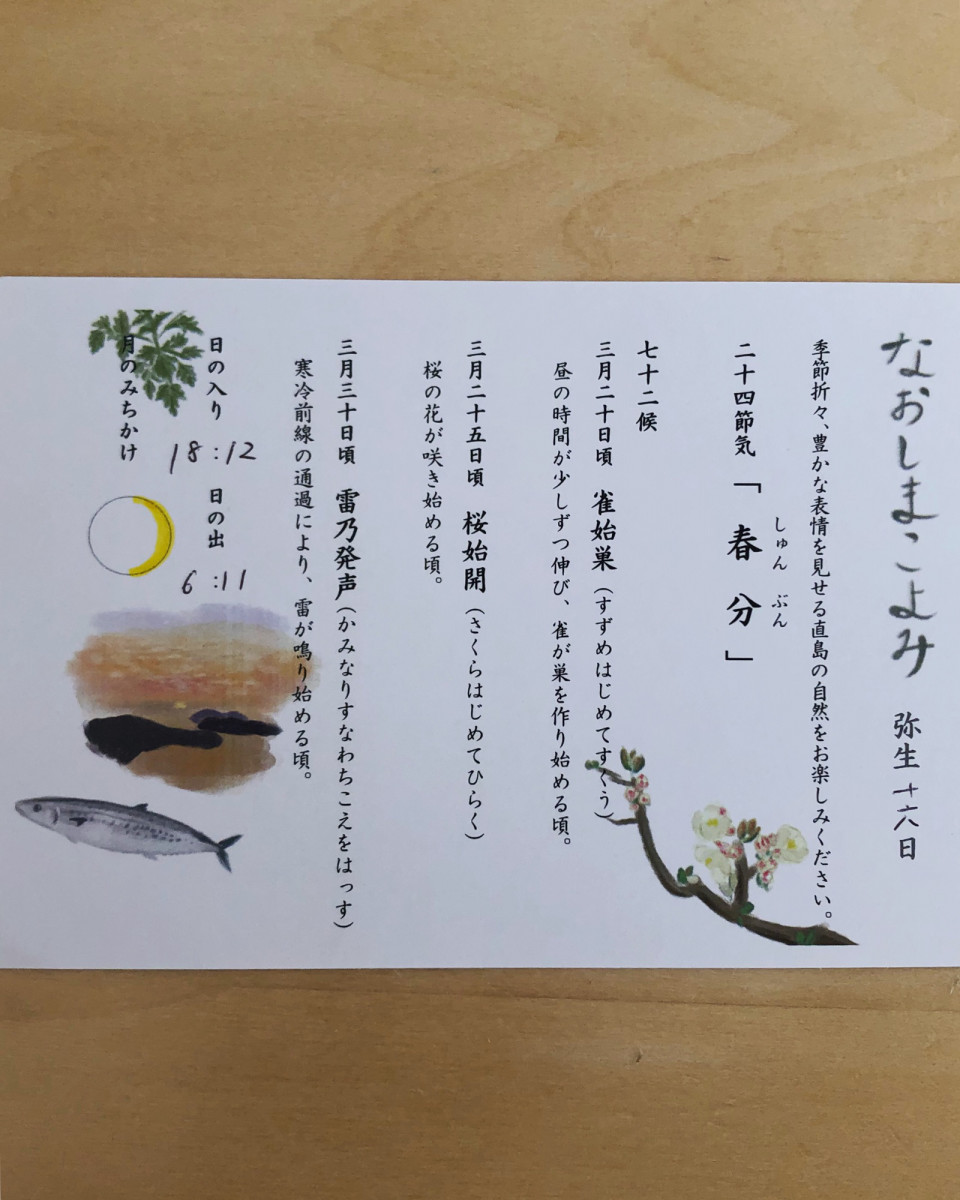 なおしまこよみ 弥生 十六日
季節折々、豊かな表情を見せる直島の自然をお楽しみください。
しゅん ぶん
二十四節気 「春 分」
七十二候
三月二十日頃 雀始巣(すずめはじめてすくう)
昼の時間が少しずつ伸び、雀が巣を作り始める頃。
三月二十五日頃 桜始開(さくらはじめてひらく)
桜の花が咲き始める頃。
三月三十日頃 雷乃発声(かみなりすなわちこえをはっす)
寒冷前線の通過により、雷が鳴り始める頃。
日の入り 18:12 日の出 6:11
月のみちかけ